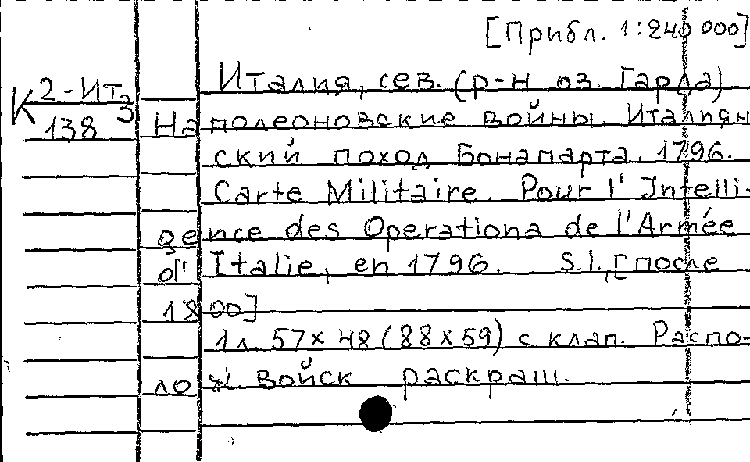 [Прибл. 1:240 000]
К 2-Ит3
138
Италия, сев. (р-н оз. Гарда)
Наполеоновские войны. Итальян
ский поход Бонапарта. 1796.
Carte Militaire. Pour l'Intelli-
gence des Operationa de l'Armée
d'Italie, en 1796. S.l., [после
1800]
1л. 57x48 (88x59) с клап. Распо-
лож. войск раскраш.